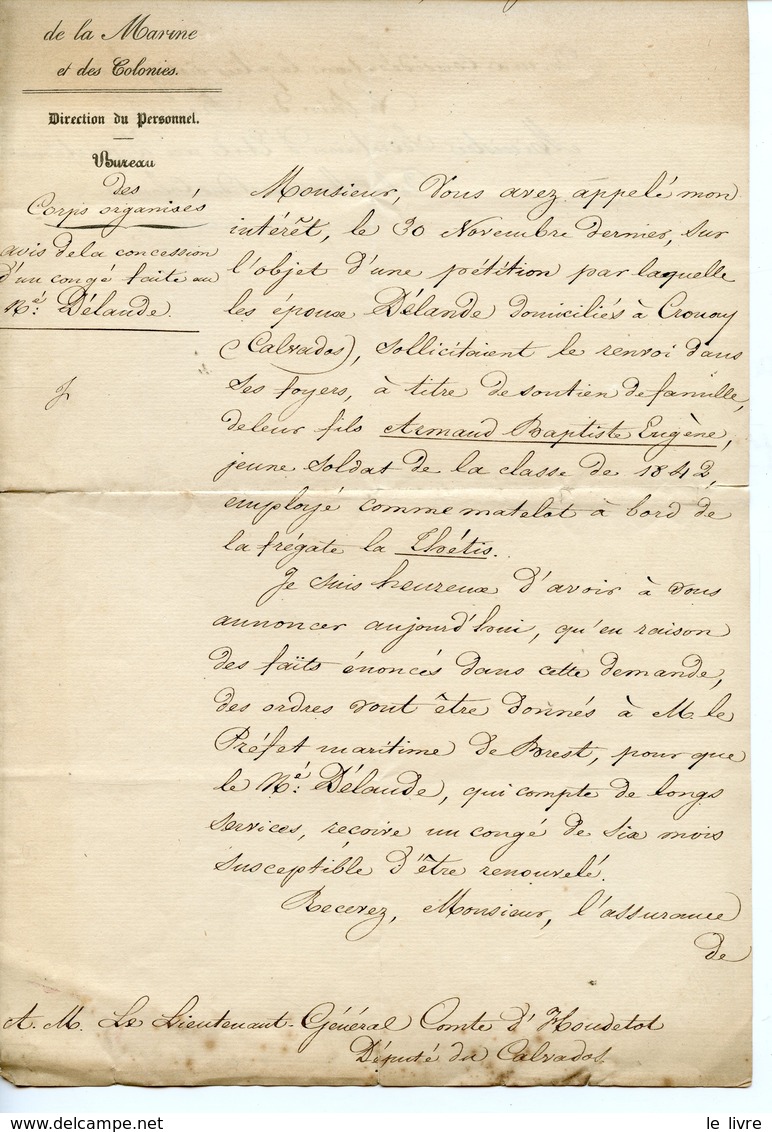 de la Marine
et des Colonies.
Direction du Personnel.
Bureau
des
Corps organisés
avis de la concession
d'un congé faite au
Né: Délande.
Monsieur, Vous avez appelé mon
intérêt, le 30 Novembre dernier, sur
l'objet d'une pétition par laquelle
les époux Délande domiciliés à Crouay
(Calvados), sollicitaient le renvoi dans
ses foyers, à titre de soutien de famille,
de leur fils Armand Baptiste Eugène,
jeune soldat de la classe de 1842,
employé comme matelot à bord de
la frégate la Thétis.
Je suis heureux d'avoir à vous
annoncer aujourd'hui, qu'en raison
des faits énoncés dans cette demande,
des ordres vont être donnés à M. le
Préfet maritime de Brest, pour que
le Né: Délande, qui compte de longs
services, reçoive un congé de six mois
susceptible d'être renouvelé.
Recevez, Monsieur, l'assurance
de
A. M. Le Lieutenant-Général Comte d'Houdetot
Député du Calvados.
le livre